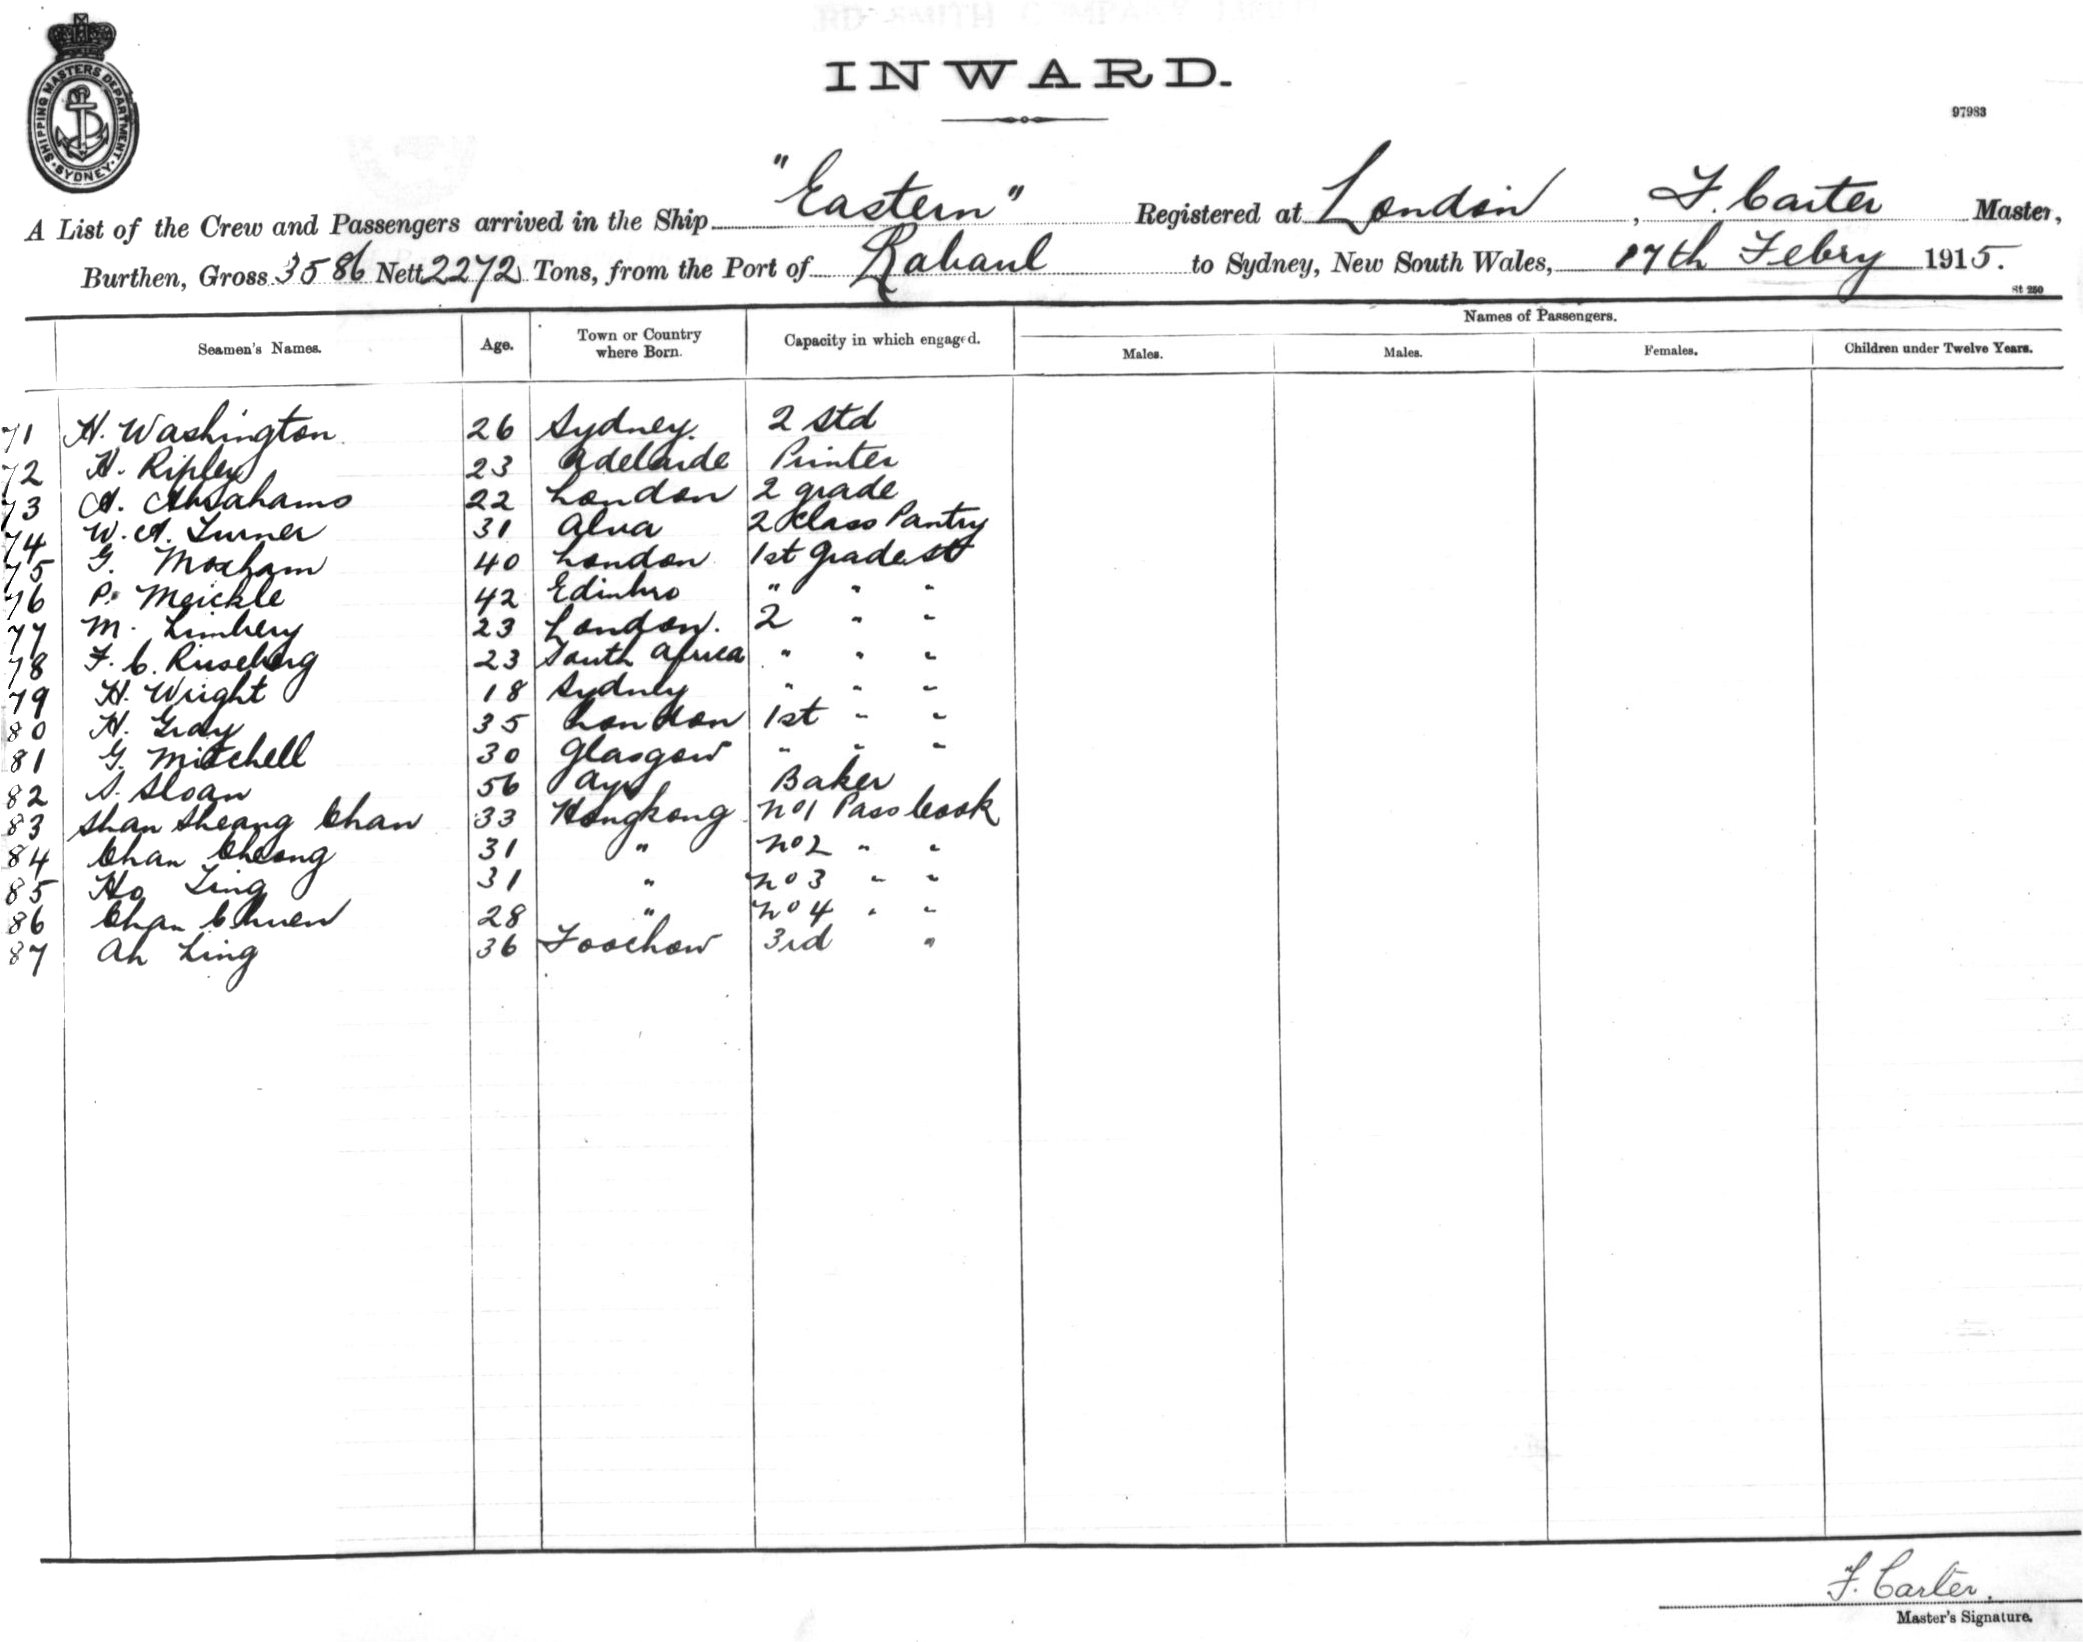 INWARD.
97983
SHIPPING MASTERS DEPARTMENT. SYDNEY.
A List of the Crew and Passengers arrived in the Ship "Eastern" Registered at London, F. Carter Master,
Burthen, Gross 3586 Nett 2272 Tons, from the Port of Rabaul to Sydney, New South Wales, 17th Febry 1915.
St 250
Names of Passengers.
Seamen's Names. Age. Town or Country where Born. Capacity in which engaged. Males. Males. Females. Children under Twelve Years.
71 H. Washington 26 Sydney. 2 Std
72 H. Ripley 23 Adelaide Printer
73 A. Abrahams 22 London 2 grade
74 W. A. Turner 31 Alva 2 Class Pantry
75 G. Moxham 40 London 1st Grade St
76 P. Meickle 42 Edinbro " " "
77 M. Limbery 23 London. 2 " "
78 F. C. Riuseberg 23 South Africa " " "
79 H. Wright 18 Sydney " " "
80 H. Gray 35 London 1st " "
81 G. Mitchell 30 Glasgow " " "
82 S. Sloan 56 Ayr Baker
83 Shan Sheang Chan 33 Hongkong No1 Pass Cook
84 Chan Cheong 31 " No2 " "
85 Ho Ting 31 " No 3 " "
86 Chan Chuen 28 " No 4 " "
87 Ah Ling 36 Foochow 3rd "
F. Carter.
Master's Signature.